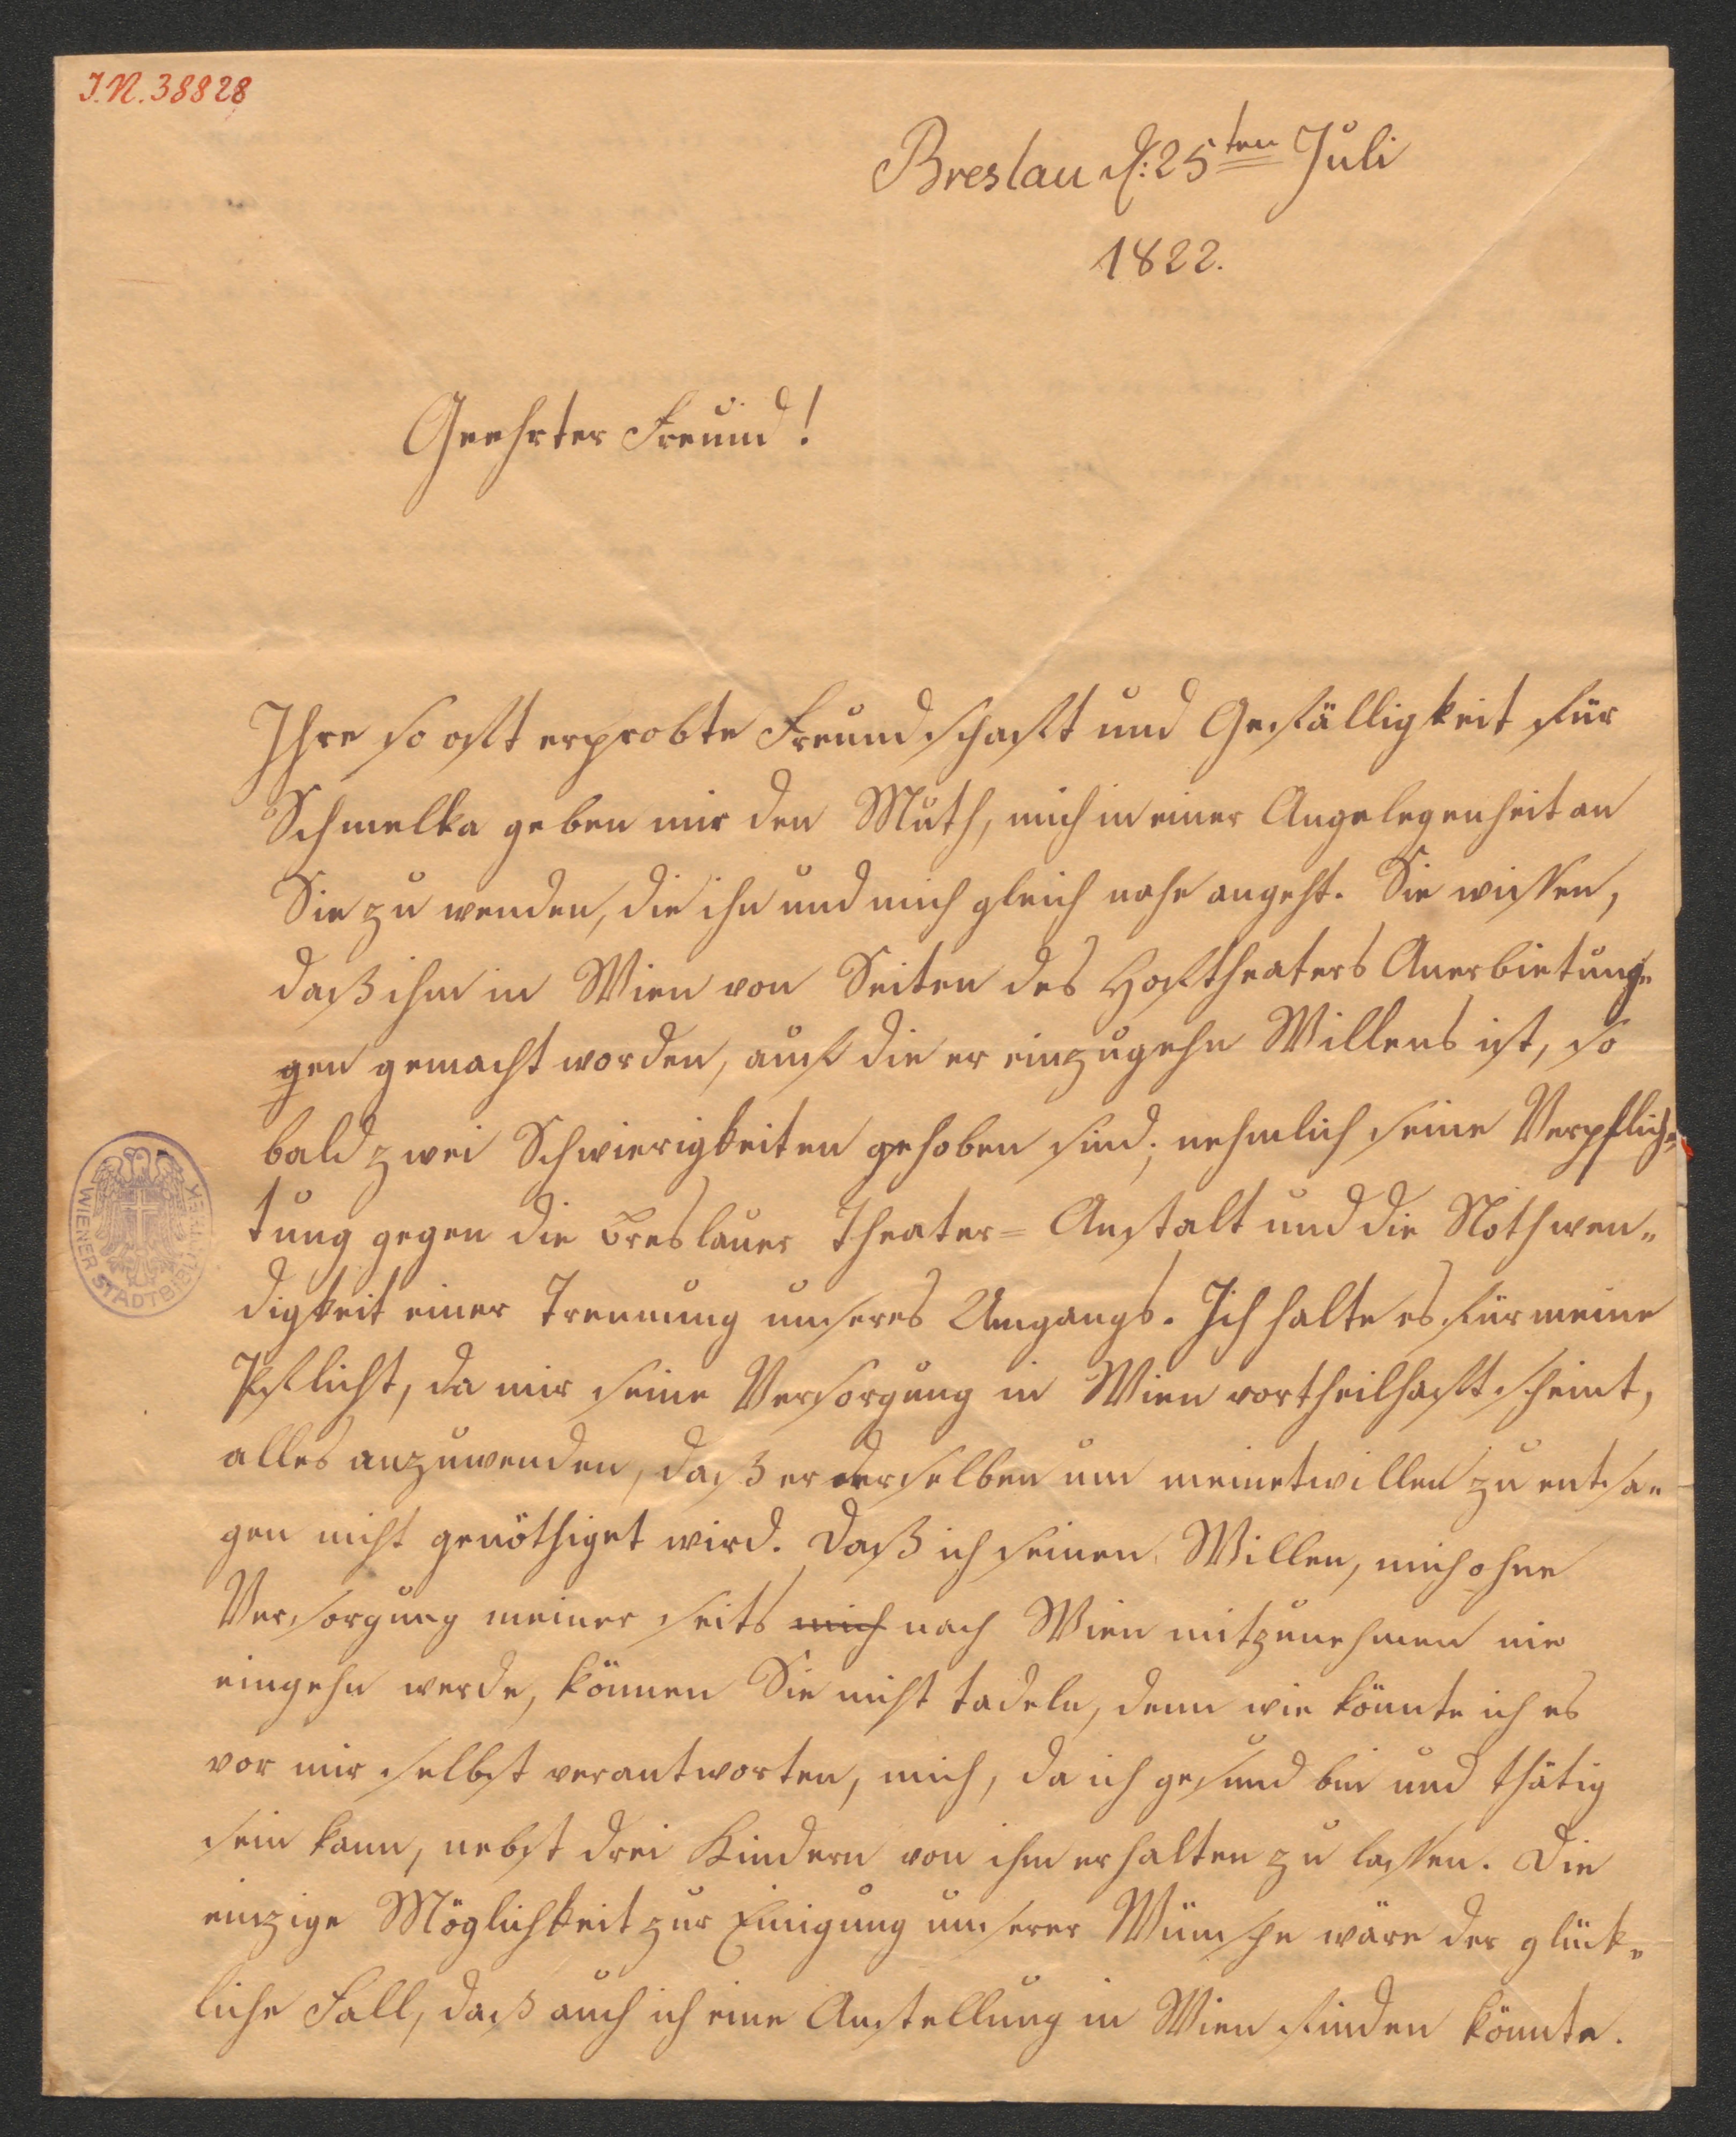 J.N. 38828
Breslau d: 25ten Juli
1822.
Geehrter Freund!
Ihre so oft erprobte Freundschaft und Gefälligkeit für
Schmelka geben mir den Muth, mich in einer Angelegenheit an
Sie zu wenden, die ihn und mich gleich nahe angeht. Sie wissen,
daß ihm in Wien von Seiten des Hoftheaters Anerbietun„
gen gemacht worden, auf die er einzugehn Willens ist, so
bald zwei Schwierigkeiten gehoben sind; nehmlich seine Verpflich„
tung gegen die Breslauer Theater= Anstalt und die Nothwen„
digkeit einer Trennung unseres Umgangs. Ich halte es für meine
Pflicht, da mir seine Versorgung in Wien vortheilhaft scheint,
alles anzuwenden, daß er derselben um meinetwillen zu entsa„
gen nicht genöthiget wird. Daß ich seinen Willen, mich ohne
Versorgung meiner seits mich nach Wien mitzunehmen nie
eingehn werde, können Sie nicht tadeln, denn wie könnte ich es
vor mir selbst verantworten, mich, da ich gesund bin und thätig
sein kann, nebst drei Kindern von ihm erhalten zu lassen. Die
einzige Möglichkeit zur Einigung unserer Wünsche wäre der glück„
liche Fall, daß auch ich eine Anstellung in Wien finden könnte.
WIENER STADTBIBLIOTHEK